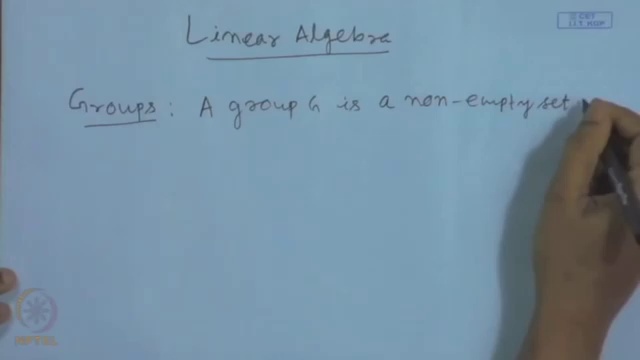 © CET
I.I.T. KGP
Linear Algebra
Groups : A group G is a non-empty set
NPTEL